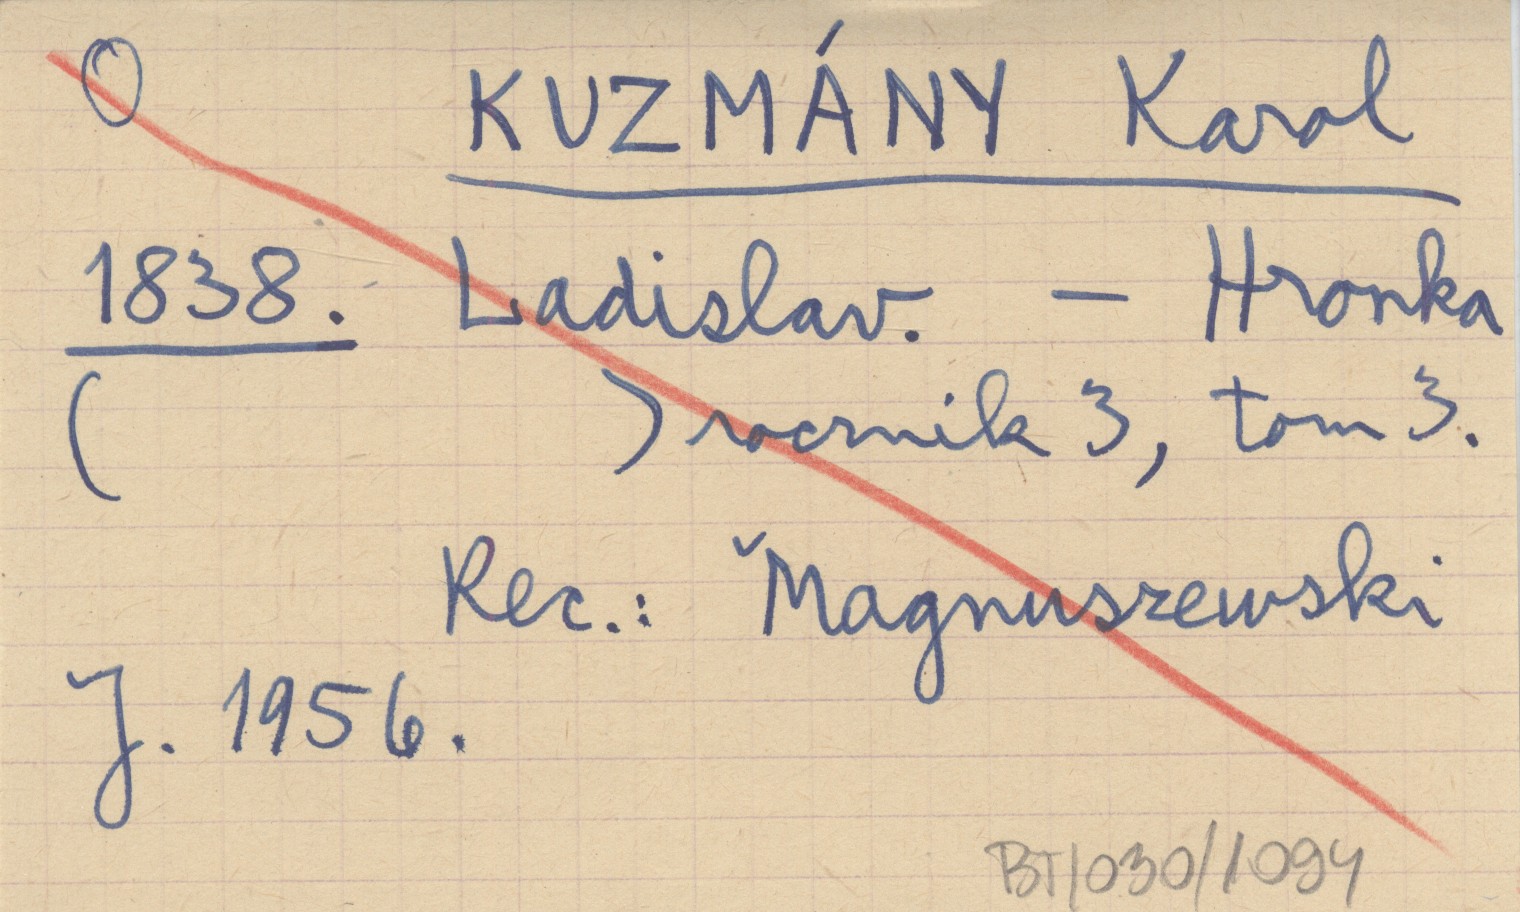 O KUZMÁNY Karol
1838. Ladislav. – Hronka
( ) rocznik 3, tom 3.
Rec.: Magnuszewski
J. 1956.
BT/030/1094